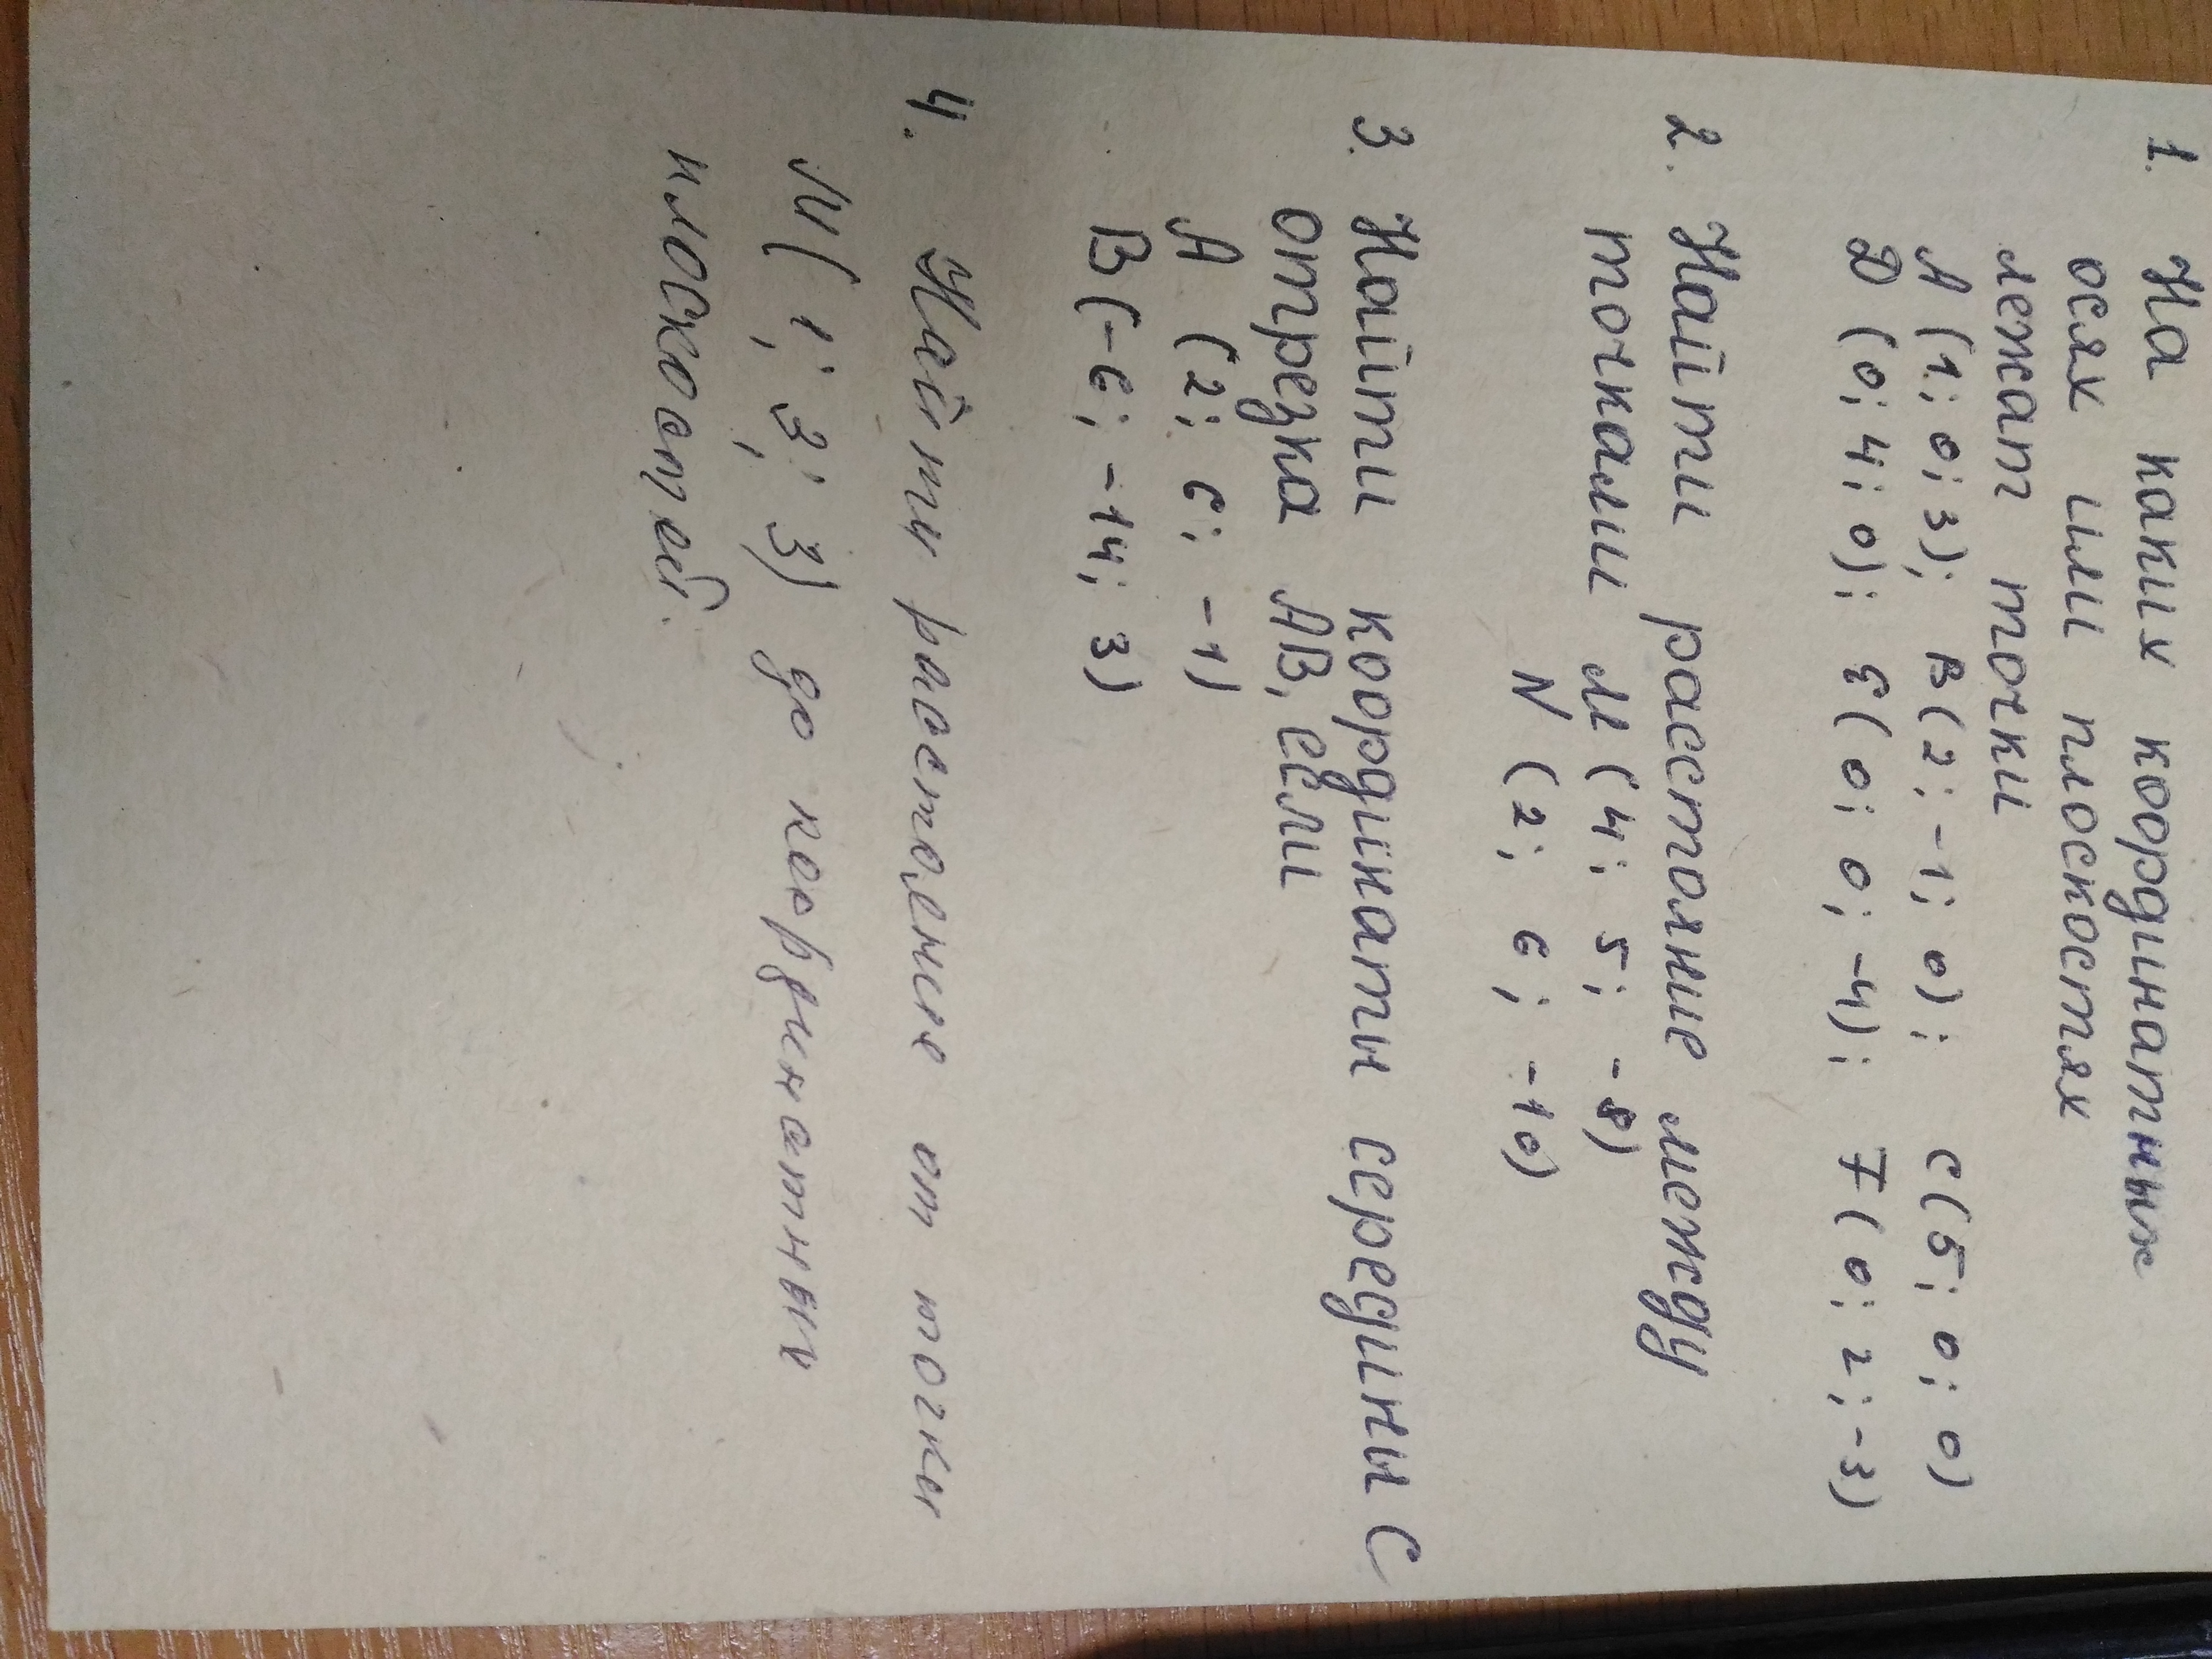 1. На каких координатных
осях или плоскостях
лежат точки
A (1; 0; 3); B(2; -1; 0); C(5; 0; 0)
D (0; 4; 0); E(0; 0; -4); F(0; 2; -3)
2. Найти расстояние между
точками M (4; 5; -8)
N (2; 6; -10)
3. Найти координаты середины C
отрезка AB, если
A (2; 6; -1)
B (-6; -14; 3)
4. Найти расстояния от точки
M( 1; 2; 3) до координатных
плоскостей.